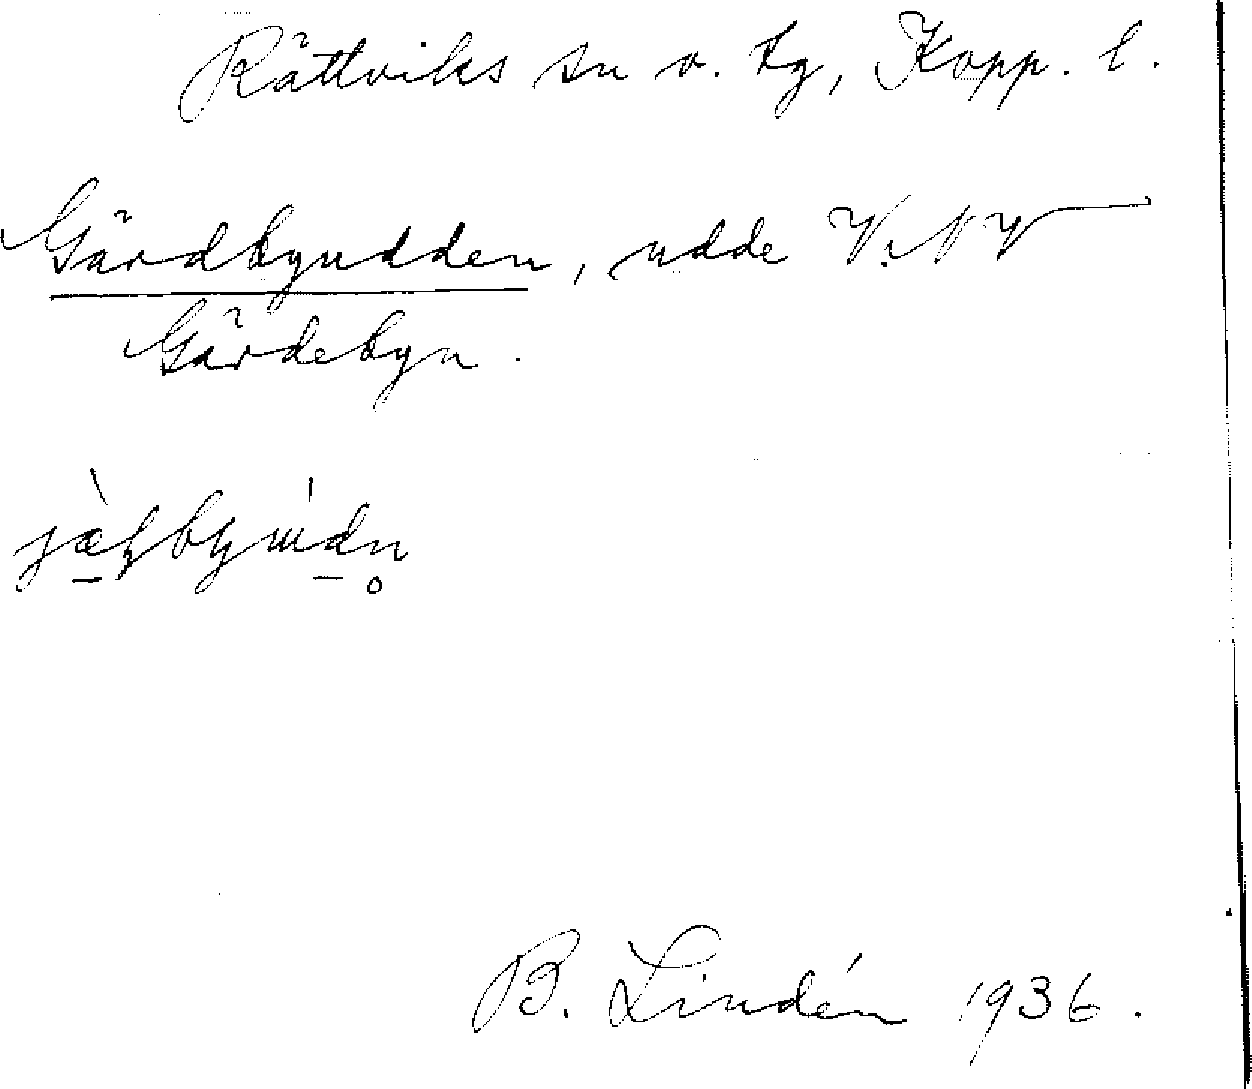 Rättviks sn o. tg, Kopp. l.
Gärdbyudden, udde V. NV
Gärdebyn.
B. Lindén 1936.